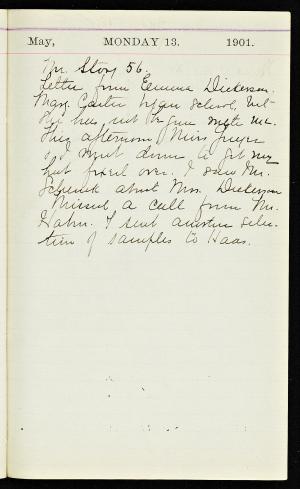 May, MONDAY 13. 1901.
Mr. Story 56.
Letter from Emma Dickerson.
Mary Carter began school, but
she has not begun with me.
This afternoon Miss
and I went down to get my
hat fixed over. I saw Mr.
Schenck about Mrs. Dickerson
Missed a call from Mr.
Hahn. I sent another selec-
tion of samples to Haas.